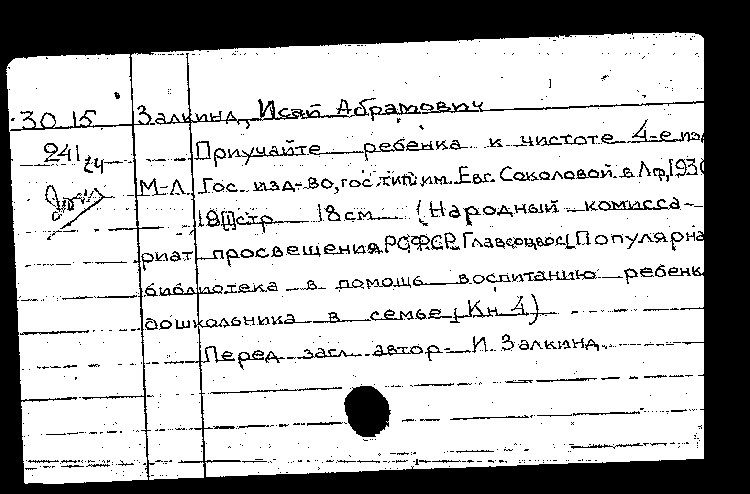 30 15 Залкинд, Исай Абрамович
241 Приучайте ребенка к чистоте 4-е изд
М-Л Гос. изд-во, гос тип им. Евг. Соколовой в Лф, 1930
18[]стр 18см (Народный комисса-
риат просвещения РСФСР Главсоцвос Популярна
библиотека в помощь воспитанию ребенк
дошкольника в семье, Кн 4)
Перед загл автор- И. Залкинд